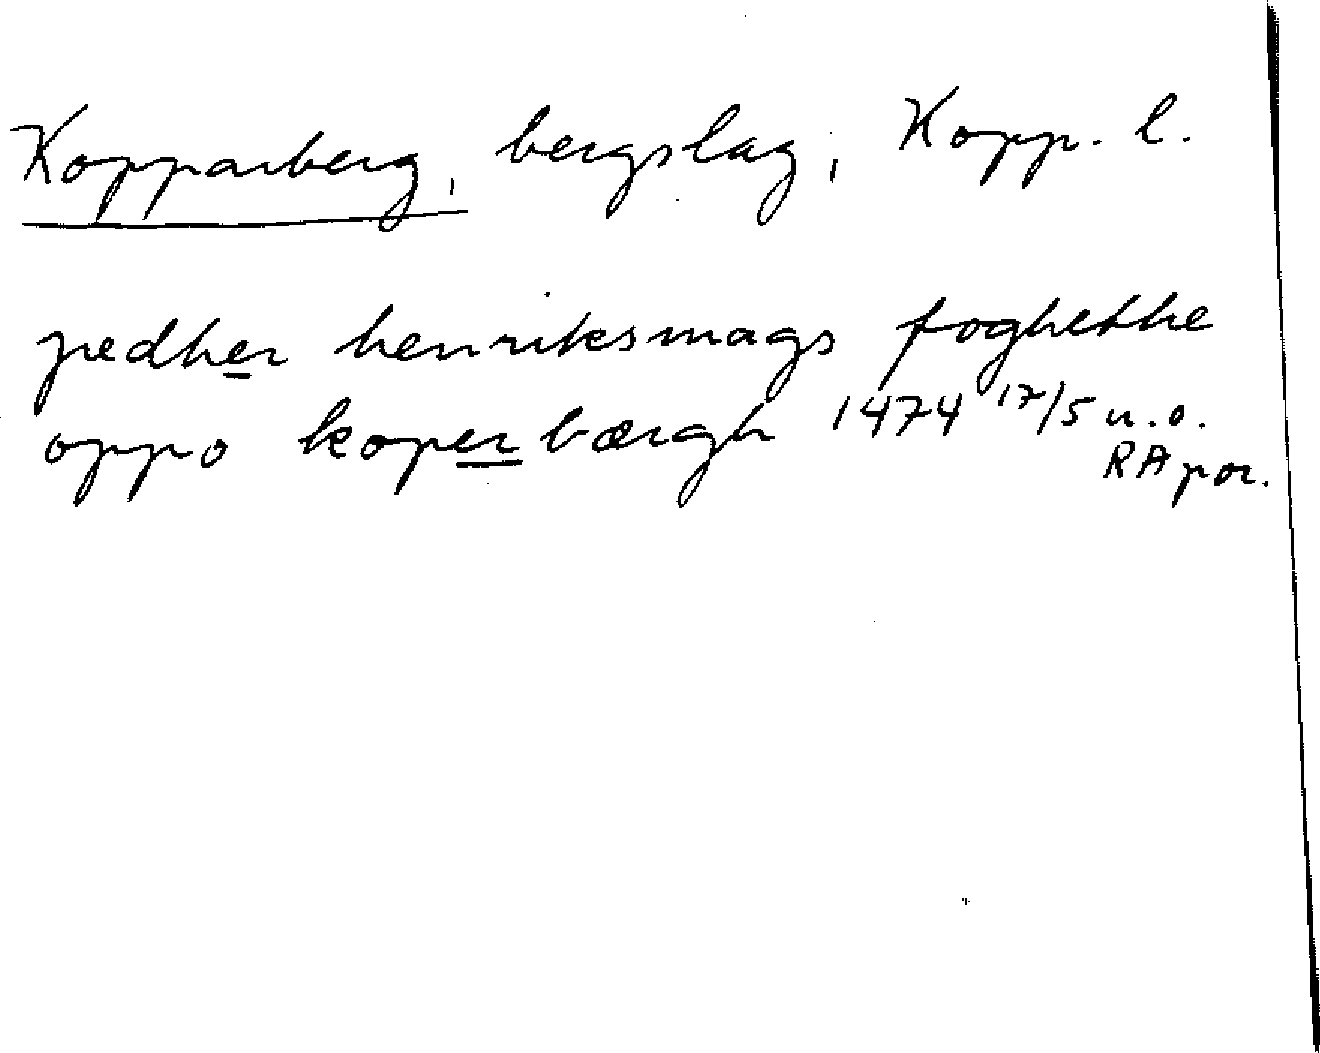 Kopparberg, bergslag, Kopp. l.
pedher henriksmags foghethe
oppo koperbærgh 1474 17/5 u.o.
RApor.